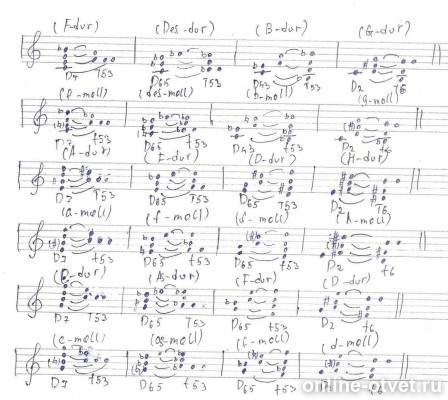 (F-dur) (Des-dur) (B-dur) (G-dur)
D7 T53 D65 T53 D43 T53 D2 T6
(des-moll) (g-moll)
D7 t53 D65 t53 D43 t53 D2 t6
(A-dur) (D-dur) (H-dur)
D7 T53 D65 T53 D65 T53 D2 T6
(a-moll) (f-moll)
D7 t53 D65 t53 D65 t53 D2 t6
(As-dur) (F-dur) (D-dur)
D7 T53 D65 T53 D65 t53 D2 t6
(c-moll) (as-moll) (f-moll) (d-moll)
D7 t53 D65 t53 D65 t53 D2 t6
online-otvet.ru